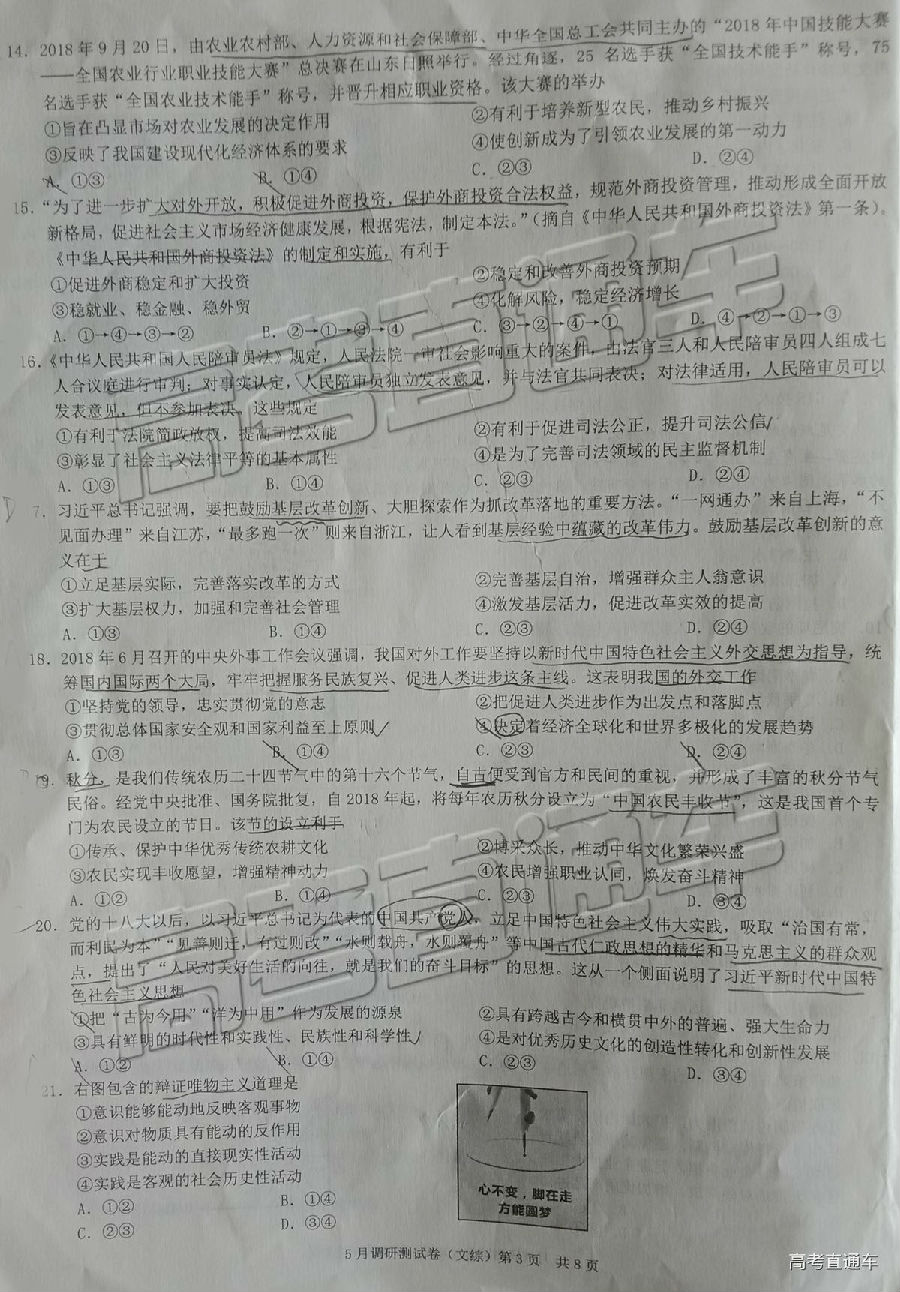 14. 2018年9月20日，由农业农村部、人力资源和社会保障部、中华全国总工会共同主办的“2018年中国技能大赛
——全国农业行业职业技能大赛”总决赛在山东日照举行。经过角逐，25名选手获“全国技术能手”称号，75
名选手获“全国农业技术能手”称号，并晋升相应职业资格。该大赛的举办
①旨在凸显市场对农业发展的决定作用 ②有利于培养新型农民，推动乡村振兴
③反映了我国建设现代化经济体系的要求 ④使创新成为了引领农业发展的第一动力
A. ①③ B. ①④ C. ②③ D. ②④
15. “为了进一步扩大对外开放，积极促进外商投资，保护外商投资合法权益，规范外商投资管理，推动形成全面开放
新格局，促进社会主义市场经济健康发展，根据宪法，制定本法。”（摘自《中华人民共和国外商投资法》第一条）。
《中华人民共和国外商投资法》的制定和实施，有利于
①促进外商稳定和扩大投资 ②稳定和改善外商投资预期
③稳就业、稳金融、稳外贸 ④化解风险，稳定经济增长
A. ①→④→③→② B. ②→①→③→④ C. ③→②→④→① D. ④→②→①→③
16. 《中华人民共和国人民陪审员法》规定，人民法院一审社会影响重大的案件，由法官三人和人民陪审员四人组成七
人合议庭进行审判；对事实认定，人民陪审员独立发表意见，并与法官共同表决；对法律适用，人民陪审员可以
发表意见，但不参加表决。这些规定
①有利于法院简政放权，提高司法效能 ②有利于促进司法公正，提升司法公信
③彰显了社会主义法律平等的基本属性 ④是为了完善司法领域的民主监督机制
A. ①③ B. ①④ C. ②③ D. ②④
7. 习近平总书记强调，要把鼓励基层改革创新、大胆探索作为抓改革落地的重要方法。“一网通办”来自上海，“不
见面办理”来自江苏，“最多跑一次”则来自浙江，让人看到基层经验中蕴藏的改革伟力。鼓励基层改革创新的意
义在于
①立足基层实际，完善落实改革的方式 ②完善基层自治，增强群众主人翁意识
③扩大基层权力，加强和完善社会管理 ④激发基层活力，促进改革实效的提高
A. ①③ B. ①④ C. ②③ D. ②④
18. 2018年6月召开的中央外事工作会议强调，我国对外工作要坚持以新时代中国特色社会主义外交思想为指导，统
筹国内国际两个大局，牢牢把握服务民族复兴、促进人类进步这条主线。这表明我国的外交工作
①坚持党的领导，忠实贯彻党的意志 ②把促进人类进步作为出发点和落脚点
③贯彻总体国家安全观和国家利益至上原则 ④决定着经济全球化和世界多极化的发展趋势
A. ①③ B. ①④ C. ②③ D. ②④
19. 秋分，是我们传统农历二十四节气中的第十六个节气，自古便受到官方和民间的重视，并形成了丰富的秋分节气
民俗。经党中央批准、国务院批复，自2018年起，将每年农历秋分设立为“中国农民丰收节”，这是我国首个专
门为农民设立的节日。该节的设立利于
①传承、保护中华优秀传统农耕文化 ②博采众长，推动中华文化繁荣兴盛
③农民实现丰收愿望，增强精神动力 ④农民增强职业认同，焕发奋斗精神
A. ①② B. ①④ C. ②③ D. ③④
20. 党的十八大以后，以习近平总书记为代表的中国共产党人，立足中国特色社会主义伟大实践，吸取“治国有常，
而利民为本”“见善则迁，有过则改”“水则载舟，水则覆舟”等中国古代仁政思想的精华和马克思主义的群众观
点，提出了“人民对美好生活的向往，就是我们的奋斗目标”的思想。这从一个侧面说明了习近平新时代中国特
色社会主义思想
①把“古为今用”“洋为中用”作为发展的源泉 ②具有跨越古今和横贯中外的普遍、强大生命力
③具有鲜明的时代性和实践性、民族性和科学性 ④是对优秀历史文化的创造性转化和创新性发展
A. ①② B. ①④ C. ②③ D. ③④
21. 右图包含的辩证唯物主义道理是
①意识能够能动地反映客观事物
②意识对物质具有能动的反作用
③实践是能动的直接现实性活动
④实践是客观的社会历史性活动
A. ①② B. ①④
C. ②③ D. ③④
心不变，脚在走
方能圆梦
5月调研测试卷（文综）第3页 共8页
高考直通车
高考直通车
高考直通车